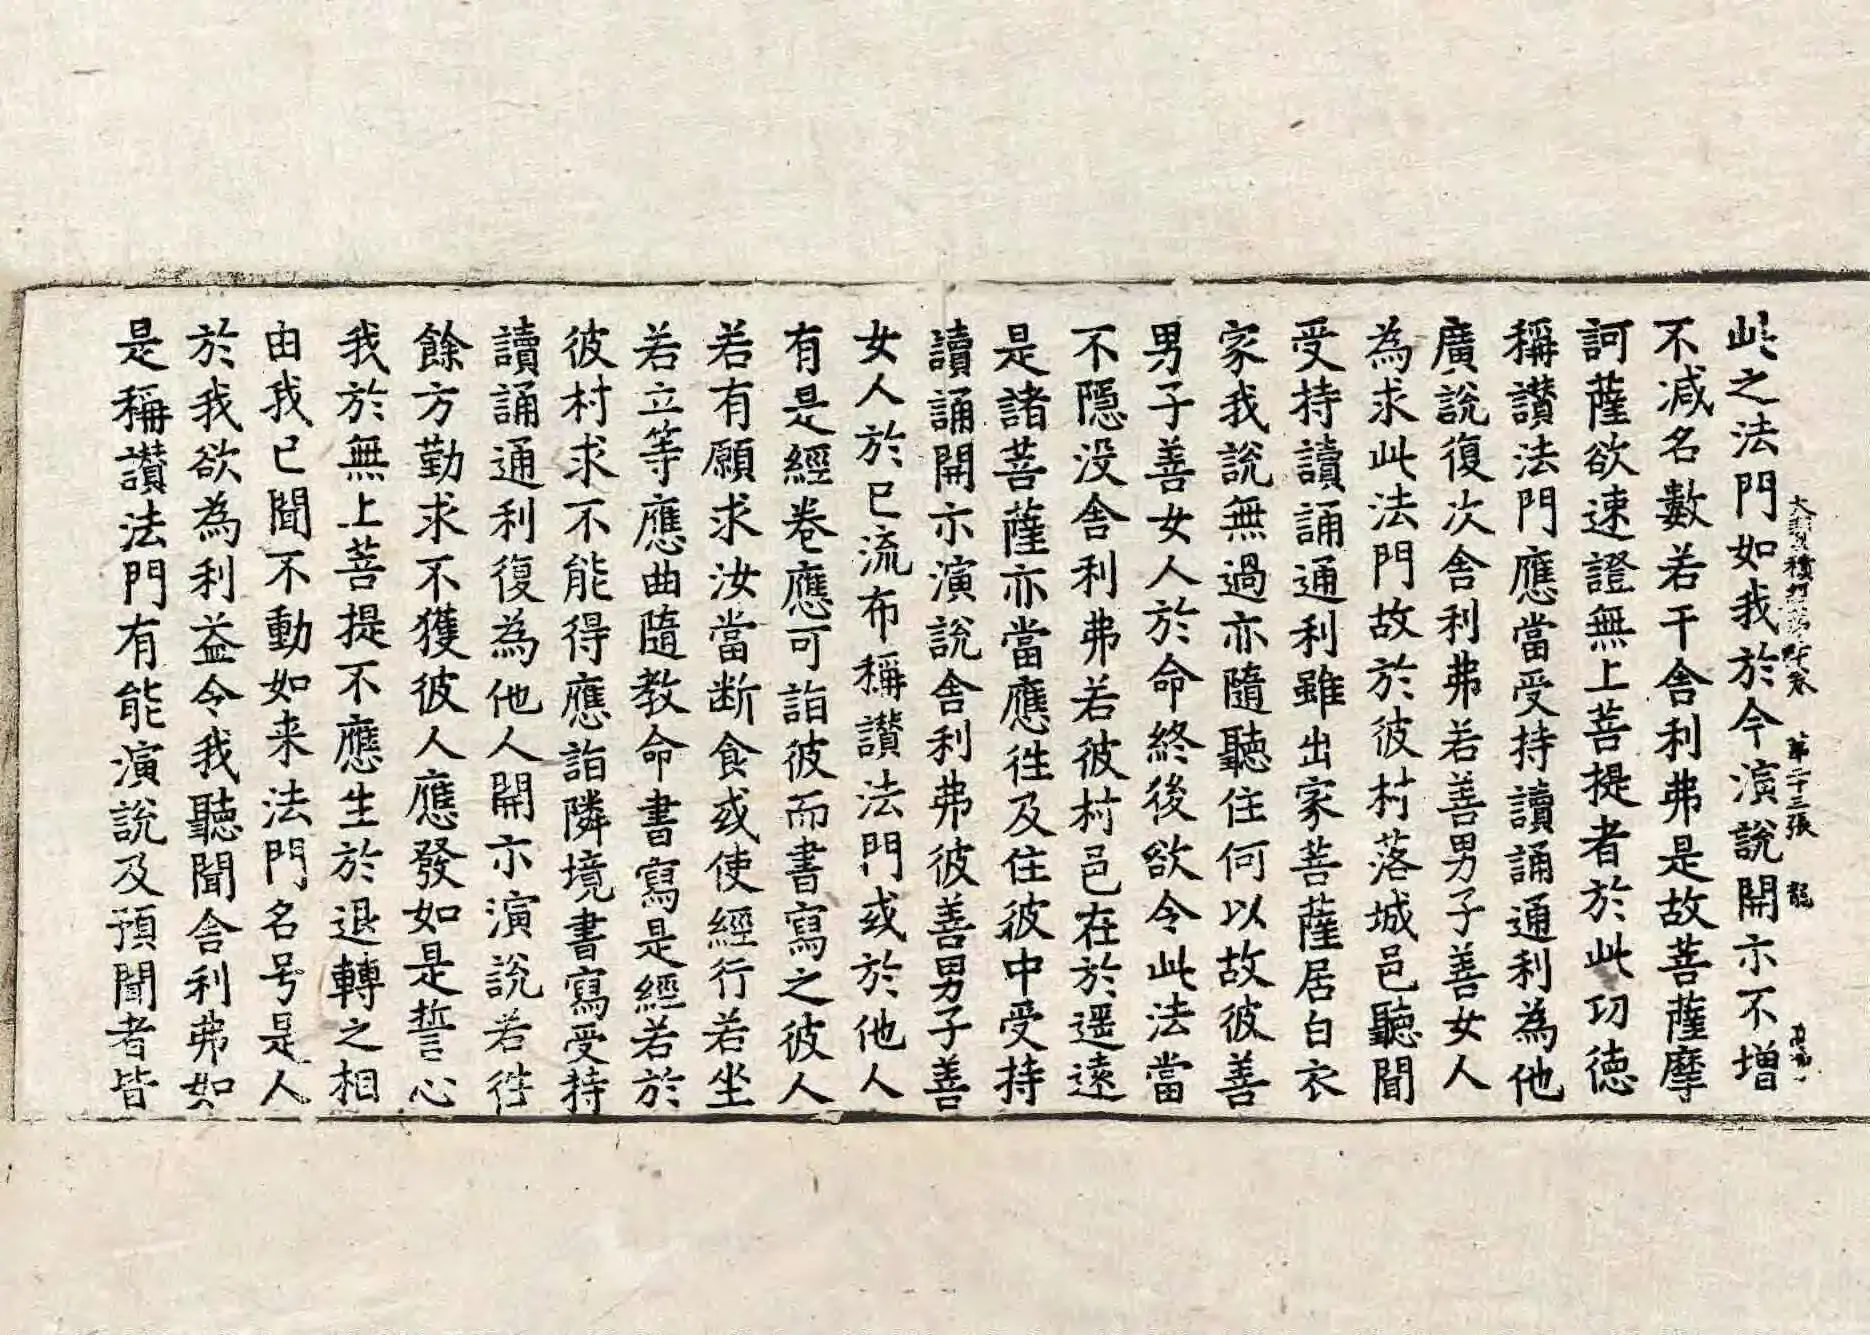 此之法門如我於今演說開示不增
大寶積經第二十卷 第二十三張 龍
不減名數若干舍利弗是故菩薩摩
訶薩欲速證無上菩提者於此功德
稱讃法門應當受持讀誦通利為他
廣說復次舍利弗若善男子善女人
為求此法門故於彼村落城邑聽聞
受持讀誦通利雖出家菩薩居白衣
家我說無過亦隨聽住何以故彼善
男子善女人於命終後欲令此法當
不隱没舍利弗若彼村邑在於遥遠
是諸菩薩亦當應往及住彼中受持
讀誦開示演說舍利弗彼善男子善
女人於已流布稱讃法門或於他人
有是經卷應可詣彼而書寫之彼人
若有願求汝當断食或使經行若坐
若立等應曲隨教命書寫是經若於
彼村求不能得應詣隣境書寫受持
讀誦通利復為他人開示演說若往
餘方勤求不獲彼人應發如是誓心
我於無上菩提不應生於退轉之相
由我已聞不動如来法門名号是人
於我欲為利益令我聽聞舍利弗如
是稱讃法門有能演說及預聞者皆